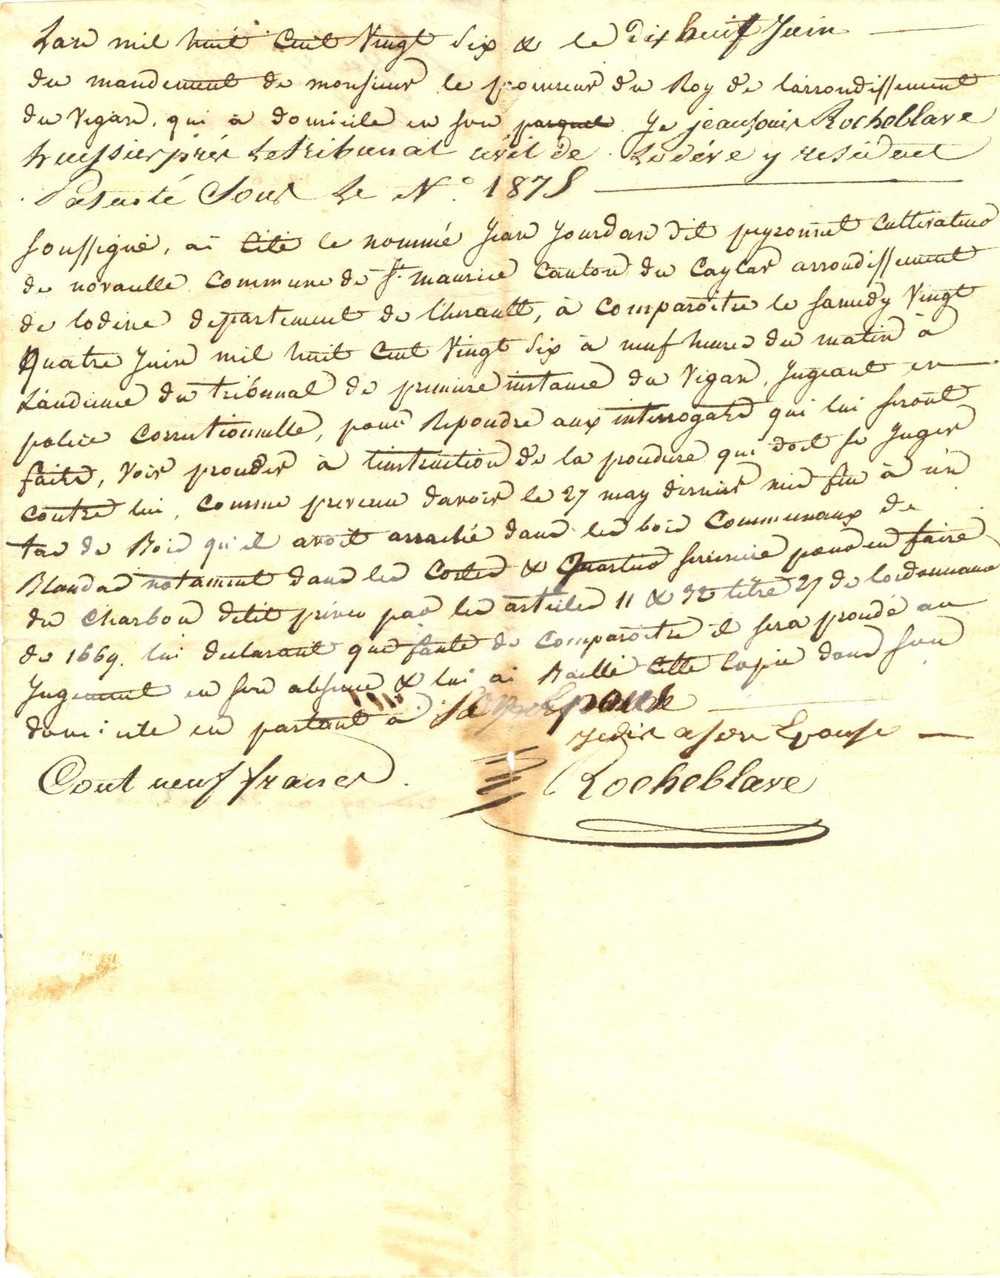 Lan mil huit Cent Vingt Six & le Dix huit Juin
du mandement de monsieur le procureur du Roy de larrondissement
du Vigan, qui à domicile en son parquet Je jean louis Rocheblave
huissier prés Le tribunal civil de Lodéve y residant
Patenté Sous Le N.° 1875
Soussigné, ai Cité le nommé Jean Jourdan dit peyronnet Cultivateur
de novacelle Commune de St. maurice Canton du Caylar arrondissement
de lodeve département de lherault, à Comparoitre le samedy Vingt
Quatre Juin mil huit Cent Vingt Six à neuf heures du matin à
Laudience du tribunal de premiere instance du Vigan, Jugeant en
police Correctionnelle, pour Repondre aux interrogats qui lui seront
faits, Voir proceder à linstruction de la procedure qui doit se Juger
contre lui, Comme prevenu davoir le 27 may dernier mis feu à un
tas de Bois qu'il avoit arraché dans les bois Communaux de
Blandas notament dans les Costes & Quartier pour en faire
du Charbon delit prevu par les articles 11 & 12 titre 27 de lordonnance
de 1669. lui declarant que faute de Comparoitre il sera procedé au
Jugement en son absence & lui ai Baillé Cette Copie dans son
domicile en parlant à Sa
Je dis a son Epouse
Cout neuf francs.
Rocheblave